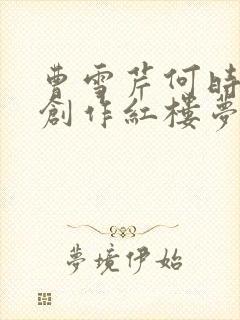 曹雪芹何時
創作紅樓夢
夢境伊始